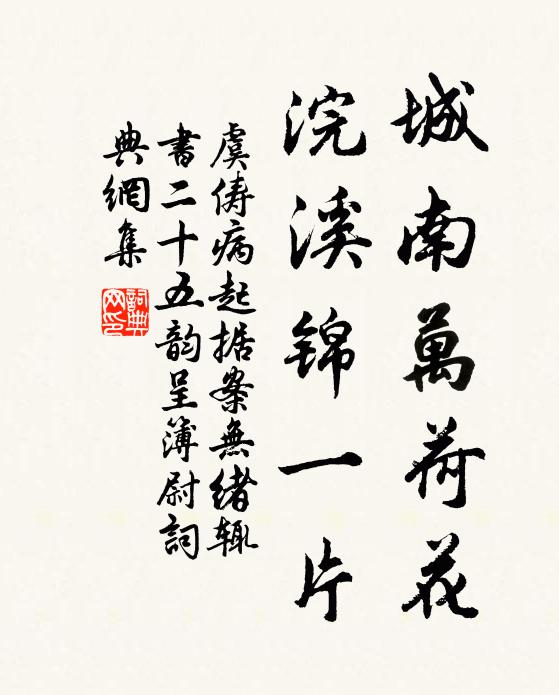 城南萬荷花
浣溪錦一片
虞俦病起据案無緒輒
書二十五韵呈簿尉詞
典網集
詞典網印